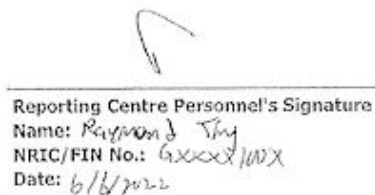 Reporting Centre Personnel's Signature
Name: Raymond
NRIC/FIN No.:
Date: 6/6/2022